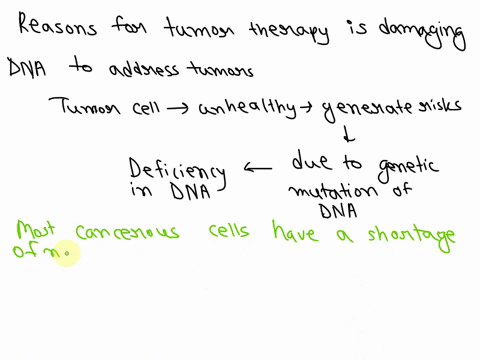 Reasons for tumor therapy is damaging
DNA to address tumors
Tumor cell → unhealthy → generate risks
↓
Deficiency ← due to genetic
in DNA mutation of
DNA
Most cancerous cells have a shortage
of n